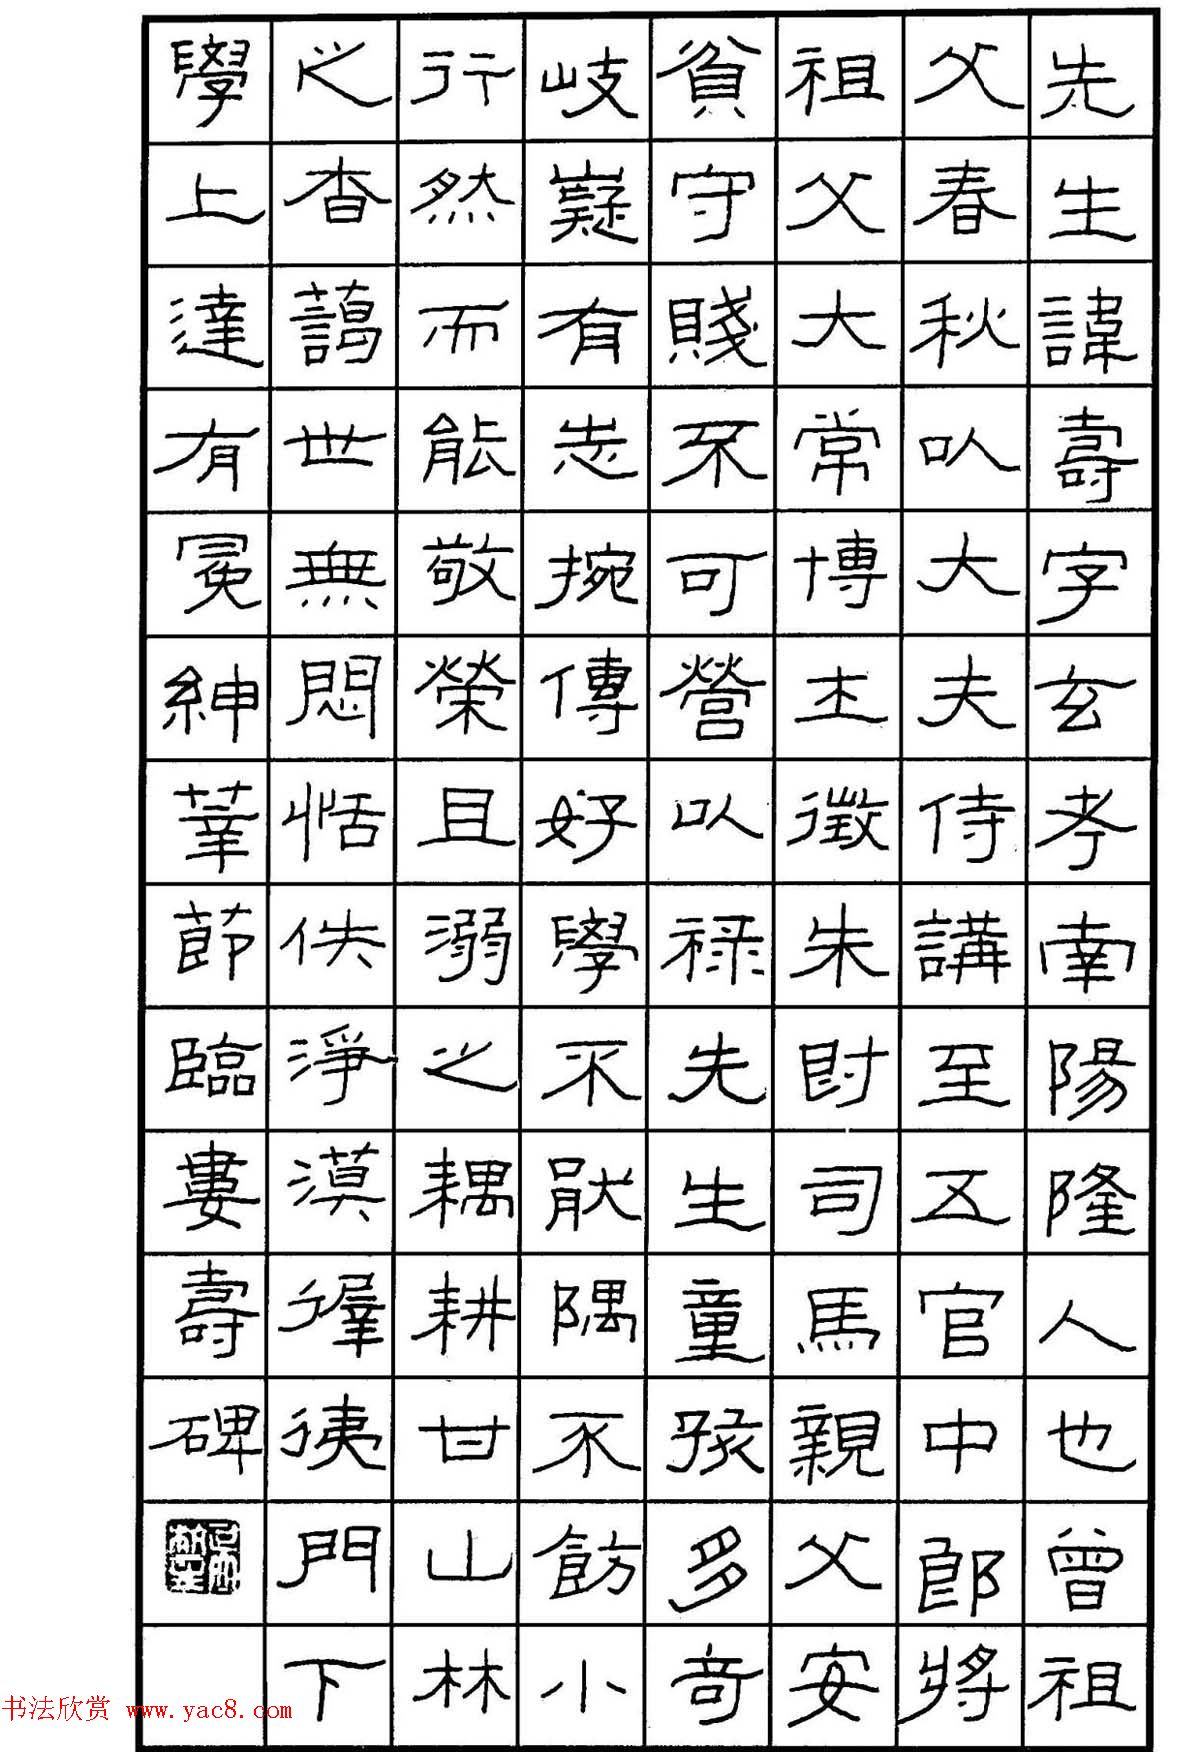 先生諱壽字玄考南陽隆人也曾祖
父春秋以大夫侍講至五官中郎將
祖父大常博士徵朱爵司馬親父安
貧守賤不可營以祿先生童孩多奇
岐嶷有志捥傳好學不猒隅不飭小
行然而能敬榮且溺之耦耕甘山林
之杳藹世無悶恬佚淨漠徲徺門下
學上達有冕紳莘節臨婁壽碑
书法欣赏 www.yac8.com